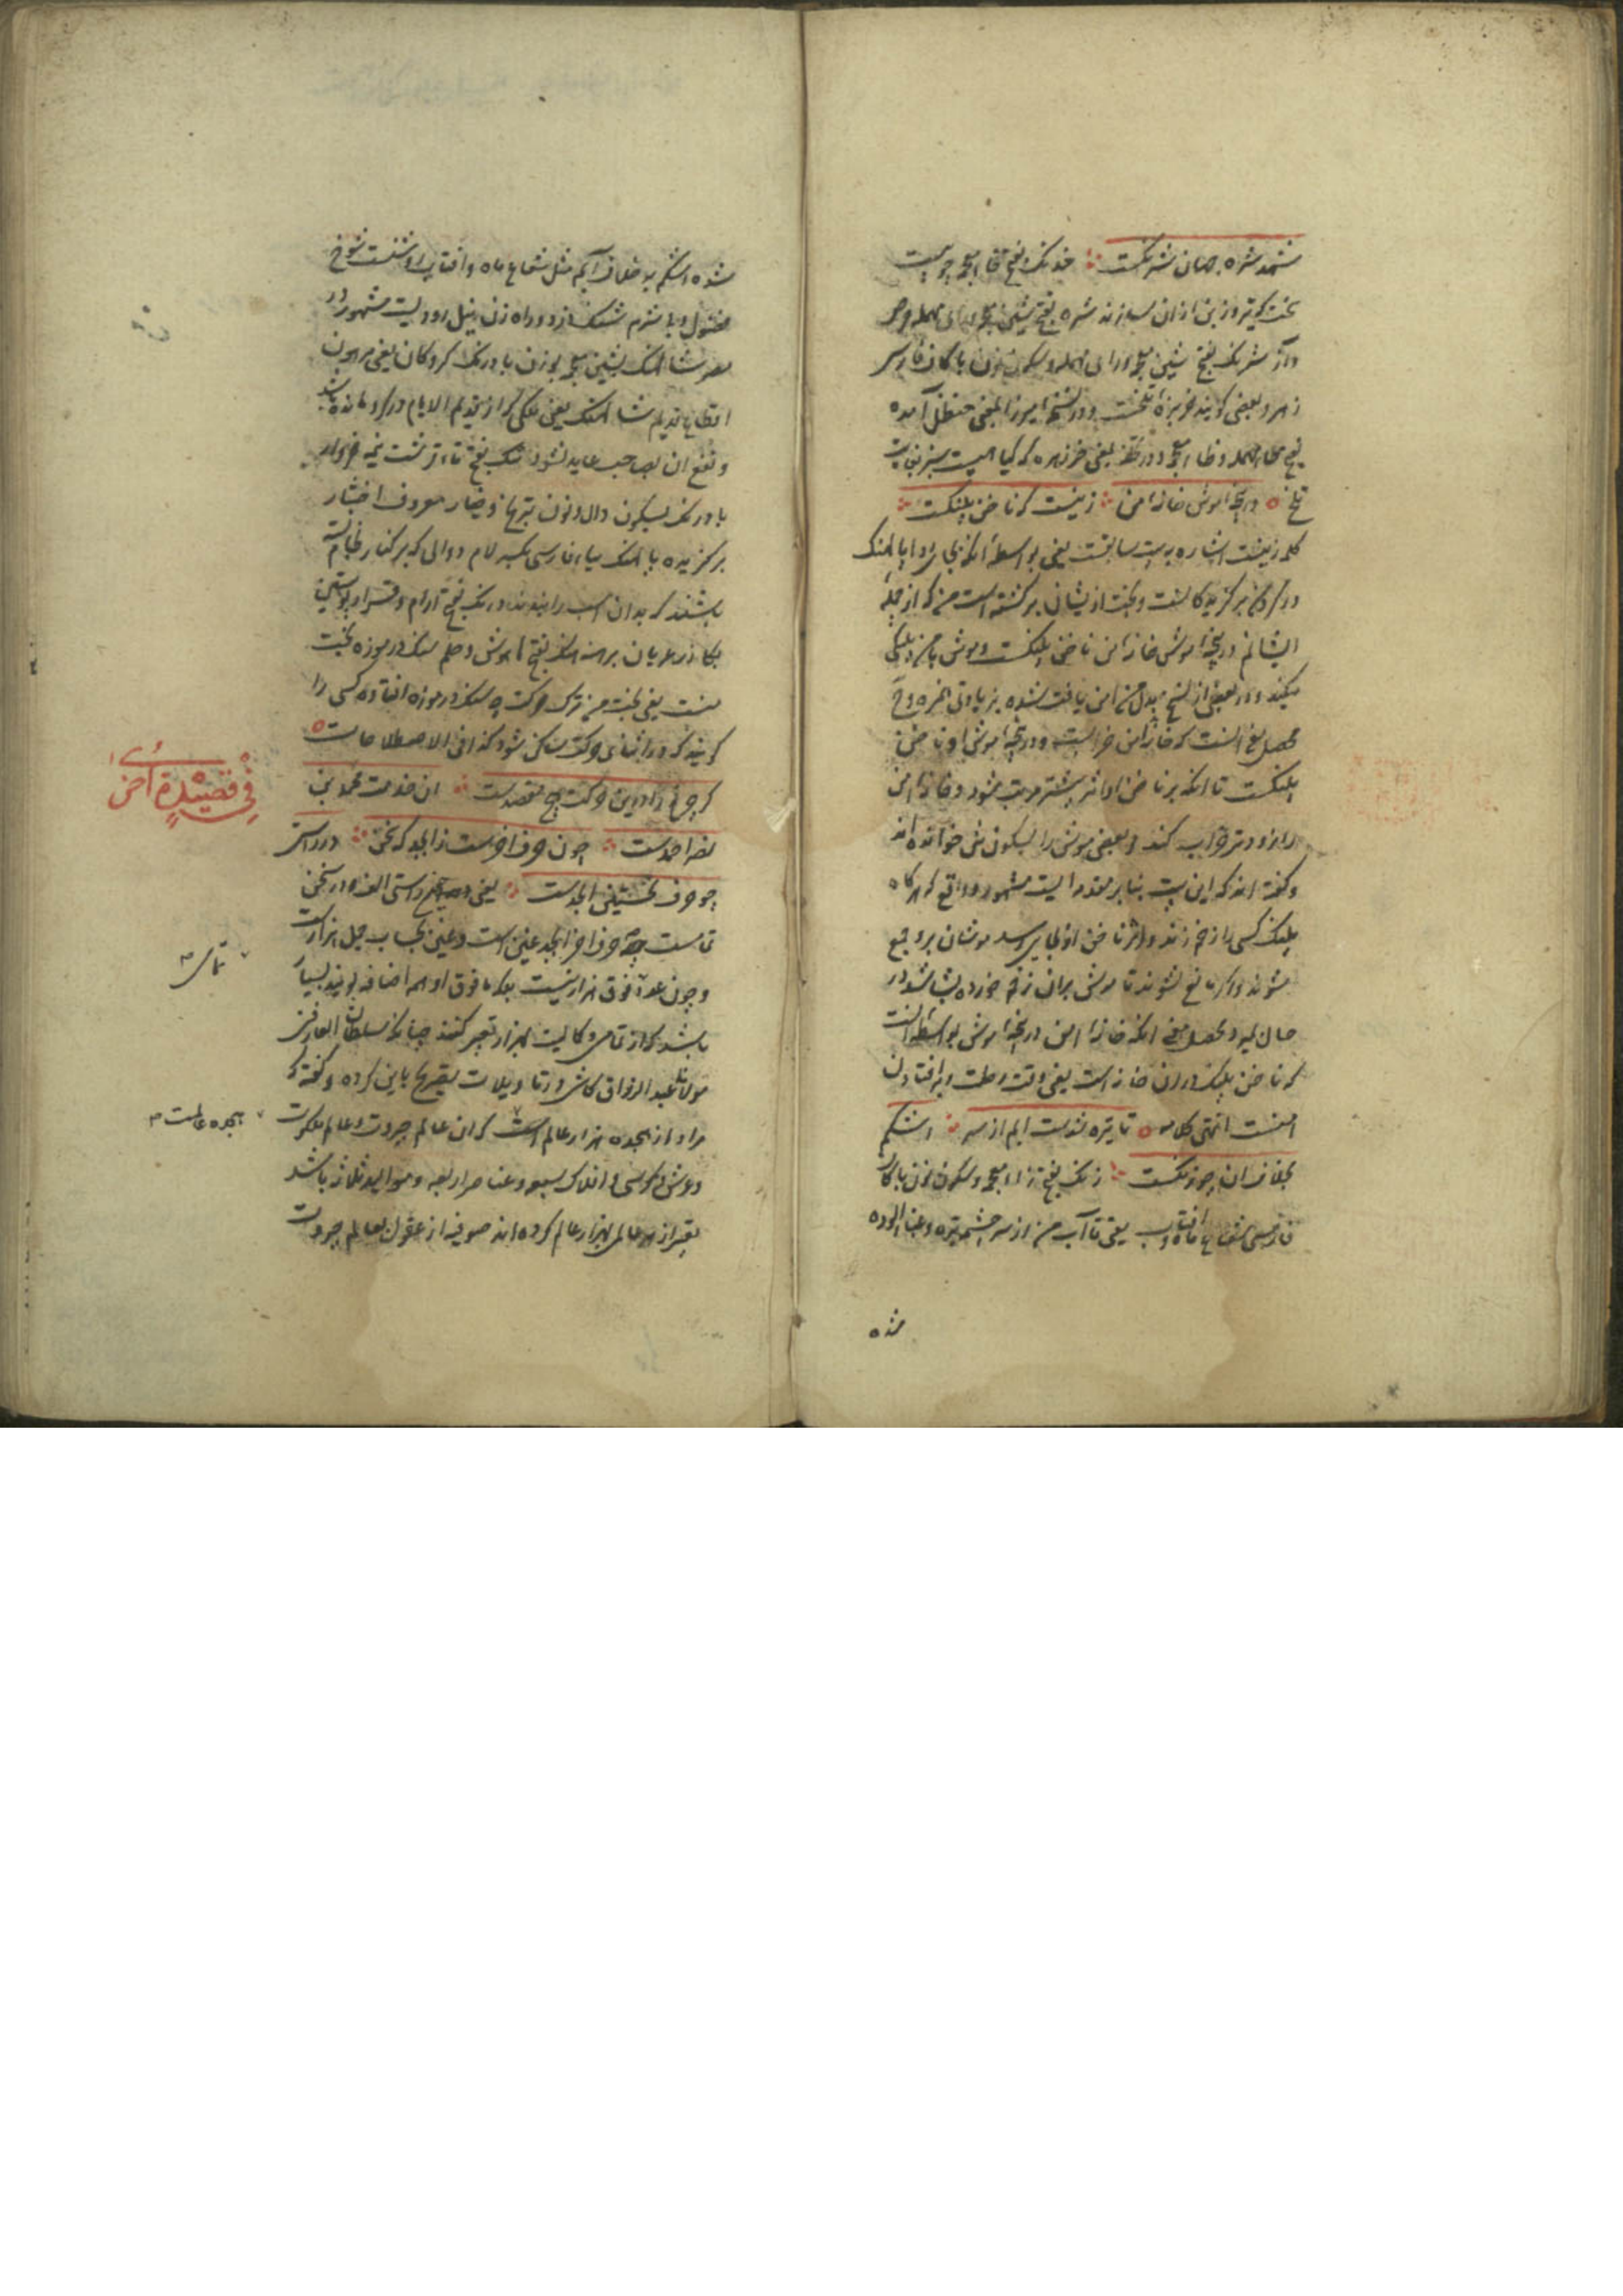 شهد شره جهان شرنگست خدنگ بفتح خاء معجمه چوبیست
سخت که تیر و زین از ان سازند شره بفتح شین معجمه و راء مهمله حرص
و آز شرنگ بفتح شین معجمه و راء مهمله و سکون نون با کاف فارسی
زهر و بعضی گویند خربزه تلخست و در نسخه میرزا بمعنی حنظل آمده
بفتح حاء مهمله و ظاء معجمه و در بمعنی خرزهره که گیاهیست سبز بغایت
تلخ ٥ دریچه موش خانه امن زینست که ناخن پلنگست
کلمه زینست اشاره به بیت سابقست یعنی بواسطه انکه بجای
در برگزیدگانست و بخت ازیشان برگشته است من که از جمله
ایشانم دریچه موش خانه امن ناخن پلنگست و موش با من پلنگی
میکند و در بعضی از نسخ بدل من امن یافت شده بزیادتی همزه و
محصل معنی انست که خانه امن خرابست و دریچه موش او ناخن
پلنگست تا انکه بر ناخن او اثر بیشتر مرتب شود و خانه امن
را زودتر خراب کند و بعضی موش را بسکون شین خوانده اند
و گفته اند که این بیت بنا بر مقدمه ایست مشهور و واقع که هرگاه
پلنگ کسی را زخم زند و اثر ناخن او بجایی رسد موشان برو جمع
میشوند و اگر مانع نشوند تا موش بران زخم خورده بشاشد در
حال بمیرد محصل معنی انکه خانه امن دریچه موش بواسطه انست
که ناخن پلنگ دران خانه است یعنی وقت رحلت و برافتادن
امنست انتهی کلامه ٥ تا تیره شدست آبم از سر اشکم
بخلاف آن چو زنگست زنگ بفتح زاء معجمه و سکون نون با کاف
فارسی شعاع ماه و آفتاب یعنی تا آب من از سر چشمه تیره و غبارآلوده
شده
شده اشکم به خلاف آبم مثل شعاع ماه و آفتاب روشنست شوخ
فضول و بی شرم شنگ دزد و راه زن نیل رودیست مشهور در
مصر شالنگ بشین معجمه بوزن بادرنگ گروگان یعنی مرهون
اقطاع قدیم شالنگ یعنی ملکی که از قدیم الایام در گرو مانده باشد
و نفع ان بصاحب عاید نشود تنگ بفتح تاء قرشت نیمه خروار
بادرنگ بسکون دال و نون ترنج و خیار معروف اختیار
برگزیده پالنگ بباء فارسی بکسر لام دوالی که بر کنار لجام بسته
باشند که بدان اسب را بندند درنگ بفتح آرام و قرار پوستین
بگاذر عریان برهنه هنگ بفتح ها هوش و حلم سنگ در موزه بخت
منست یعنی بخت من ترک حرکت چه سنگ در موزه افتاده کسی را
گویند که در اثنای حرکت ساکن شود کذا فی الاصطلاحات ٥
فی قصیدة اخری
گرچه نه رادین حرکت هیچ مقصدست ان خدمت محمد بن
نصر احمدست چون حرف آخرست ز ابجد که سخن در راستی
چو حرف نخستین ابجدست یعنی ممدوح راستی الف و در سخن
تمامست چه حرف آخر ابجد غین است و غین بحساب جمل هزارست
و چون عدد فوق هزار نیست بلکه ما فوق او همه اضافه بویند بسیار
باشد که از تمامی و کمالیت بهزار تعبیر کنند چنانکه سلطان العارفین
مولانا عبد الرزاق کاشی در تاویلات تصریح باین کرده و گفته که
مراد از هجده هزار عالم است که ان عالم جبروت و عالم ملکوت
و عرش و کرسی و افلاک سبعه و عناصر اربعه و موالید ثلاثه باشد
تعبیر از هر عالم بهزار عالم کرده اند صوفیه از عقول بعالم جبروت
تمامی
هجده عالمست